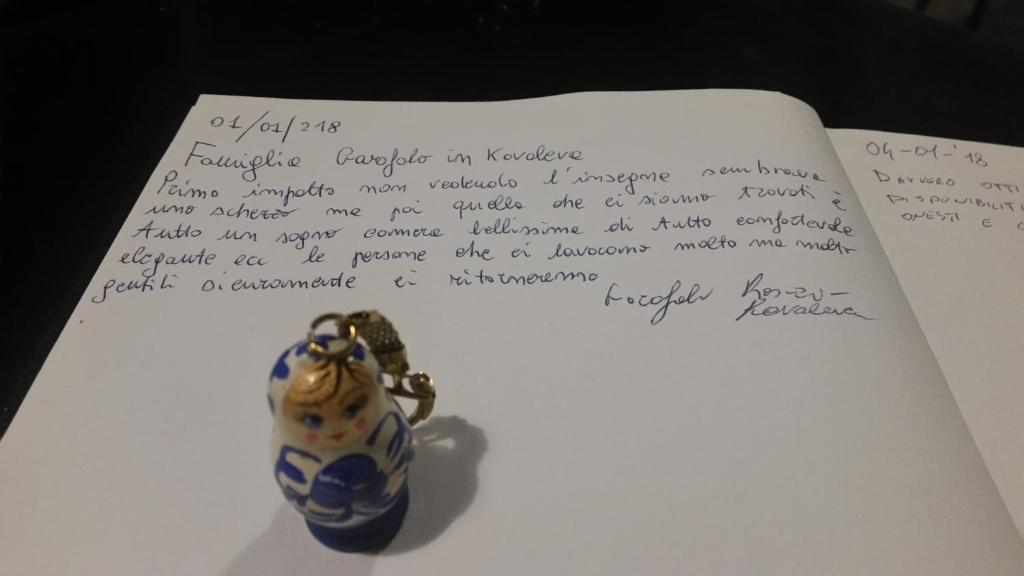 01/01/218
Famiglia Garofolo in Kovaleva
Primo impatto non vedendo l'insegne sembrava
uno scherzo me poi quello che ci siamo trovati è
tutto un sogno camera bellissime di tutto confortevole
elegante ed le persone che ci lavorano molto ma molto
gentili sicuramente ci ritorneremo
Garofolo
Kovaleva
04-01-'18
DAVVERO OTTI
DISPONIBILIT
ONESTI E